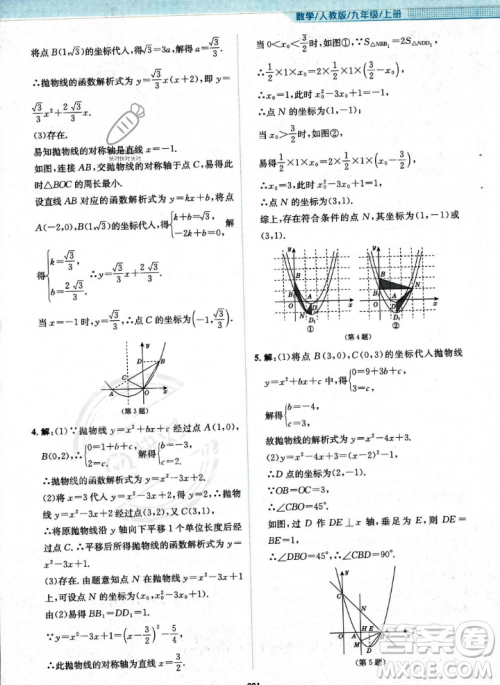 数学/人教版/九年级/上册
将点 B(1,√3)的坐标代入,得 a=√3/3.
∴抛物线的函数解析式为 y=√3/3 x(x+2),即 y=
√3/3 x²+2√3/3 x.
(3)存在.
易知抛物线的对称轴是直线 x=-1.
如图,连接 AB,交抛物线的对称轴于点 C,此
时△BOC 的周长最小.
设直线 AB 对应的函数解析式为 y=kx+b,将点
A(-2,0),B(1,√3)的坐标代入,得{k+b=√3, -2k+b=0. 解
得{k=√3/3, b=2√3/3. ∴y=√3/3 x+2√3/3.
当 x=-1 时,y=√3/3,∴点 C 的坐标为(-1,√3/3).
y
B
C
A
O
x
(第 3 题)
4.解:(1)∵抛物线 y=x²+bx+c 经过点 A(1,0),
B(0,2),∴{0=1+b+c, 2=c. 解得{b=-3, c=2.
∴抛物线的函数解析式为 y=x²-3x+2.
(2)将 x=3 代入 y=x²-3x+2,得 y=2.
∴抛物线 y=x²-3x+2 过点(3,2).
∴将原抛物线沿 y 轴向下平移 1 个单位长度后过
点 C.∴平移后抛物线的函数解析式为 y=x²-3x+1.
(3)存在.由题意知点 N 在抛物线 y=x²-3x+1
上,∴可设点 N 的坐标为(x₀,x₀²-3x₀+1).
由(2)易得 BB₁=DD₁=1.
由(2)得 y=x²-3x+1=(x-3/2)²-5/4.
∴此抛物线的对称轴为直线 x=3/2.
当 0<x₀<3/2 时,如图①,∵S△NBB₁=2S△NDD₁,
∴1/2×1×x₀=2×1/2×1×(3/2-x₀).
∴x₀=1,此时 x₀²-3x₀+1=-1.
∴点 N 的坐标为(1,-1).
当 x₀>3/2 时,如图②.
易得 1/2×1×x₀=2×1/2×1×(x₀-3/2).
∴x₀=3,此时 x₀²-3x₀+1=1.
∴点 N 的坐标为(3,1).
综上,存在符合条件的点 N,其坐标为(1,-1)或
(3,1).
①
②
(第 4 题)
5.解:(1)将点 B(3,0),C(0,3)的坐标代入抛物线
y=x²+bx+c,得{0=9+3b+c, 3=c.
解得{b=-4, c=3.
故抛物线的函数解析式为 y=x²-4x+3.
(2)∵y=x²-4x+3=(x-2)²-1,
∴D 点的坐标为(2,-1).
∵OB=OC=3,
∴∠OBC=45°.
如图,过 D 作 DE⊥x 轴,垂足为 E,则 DE=
BE=1.
∴∠DBO=45°,∴∠CBD=90°.
(第 5 题)